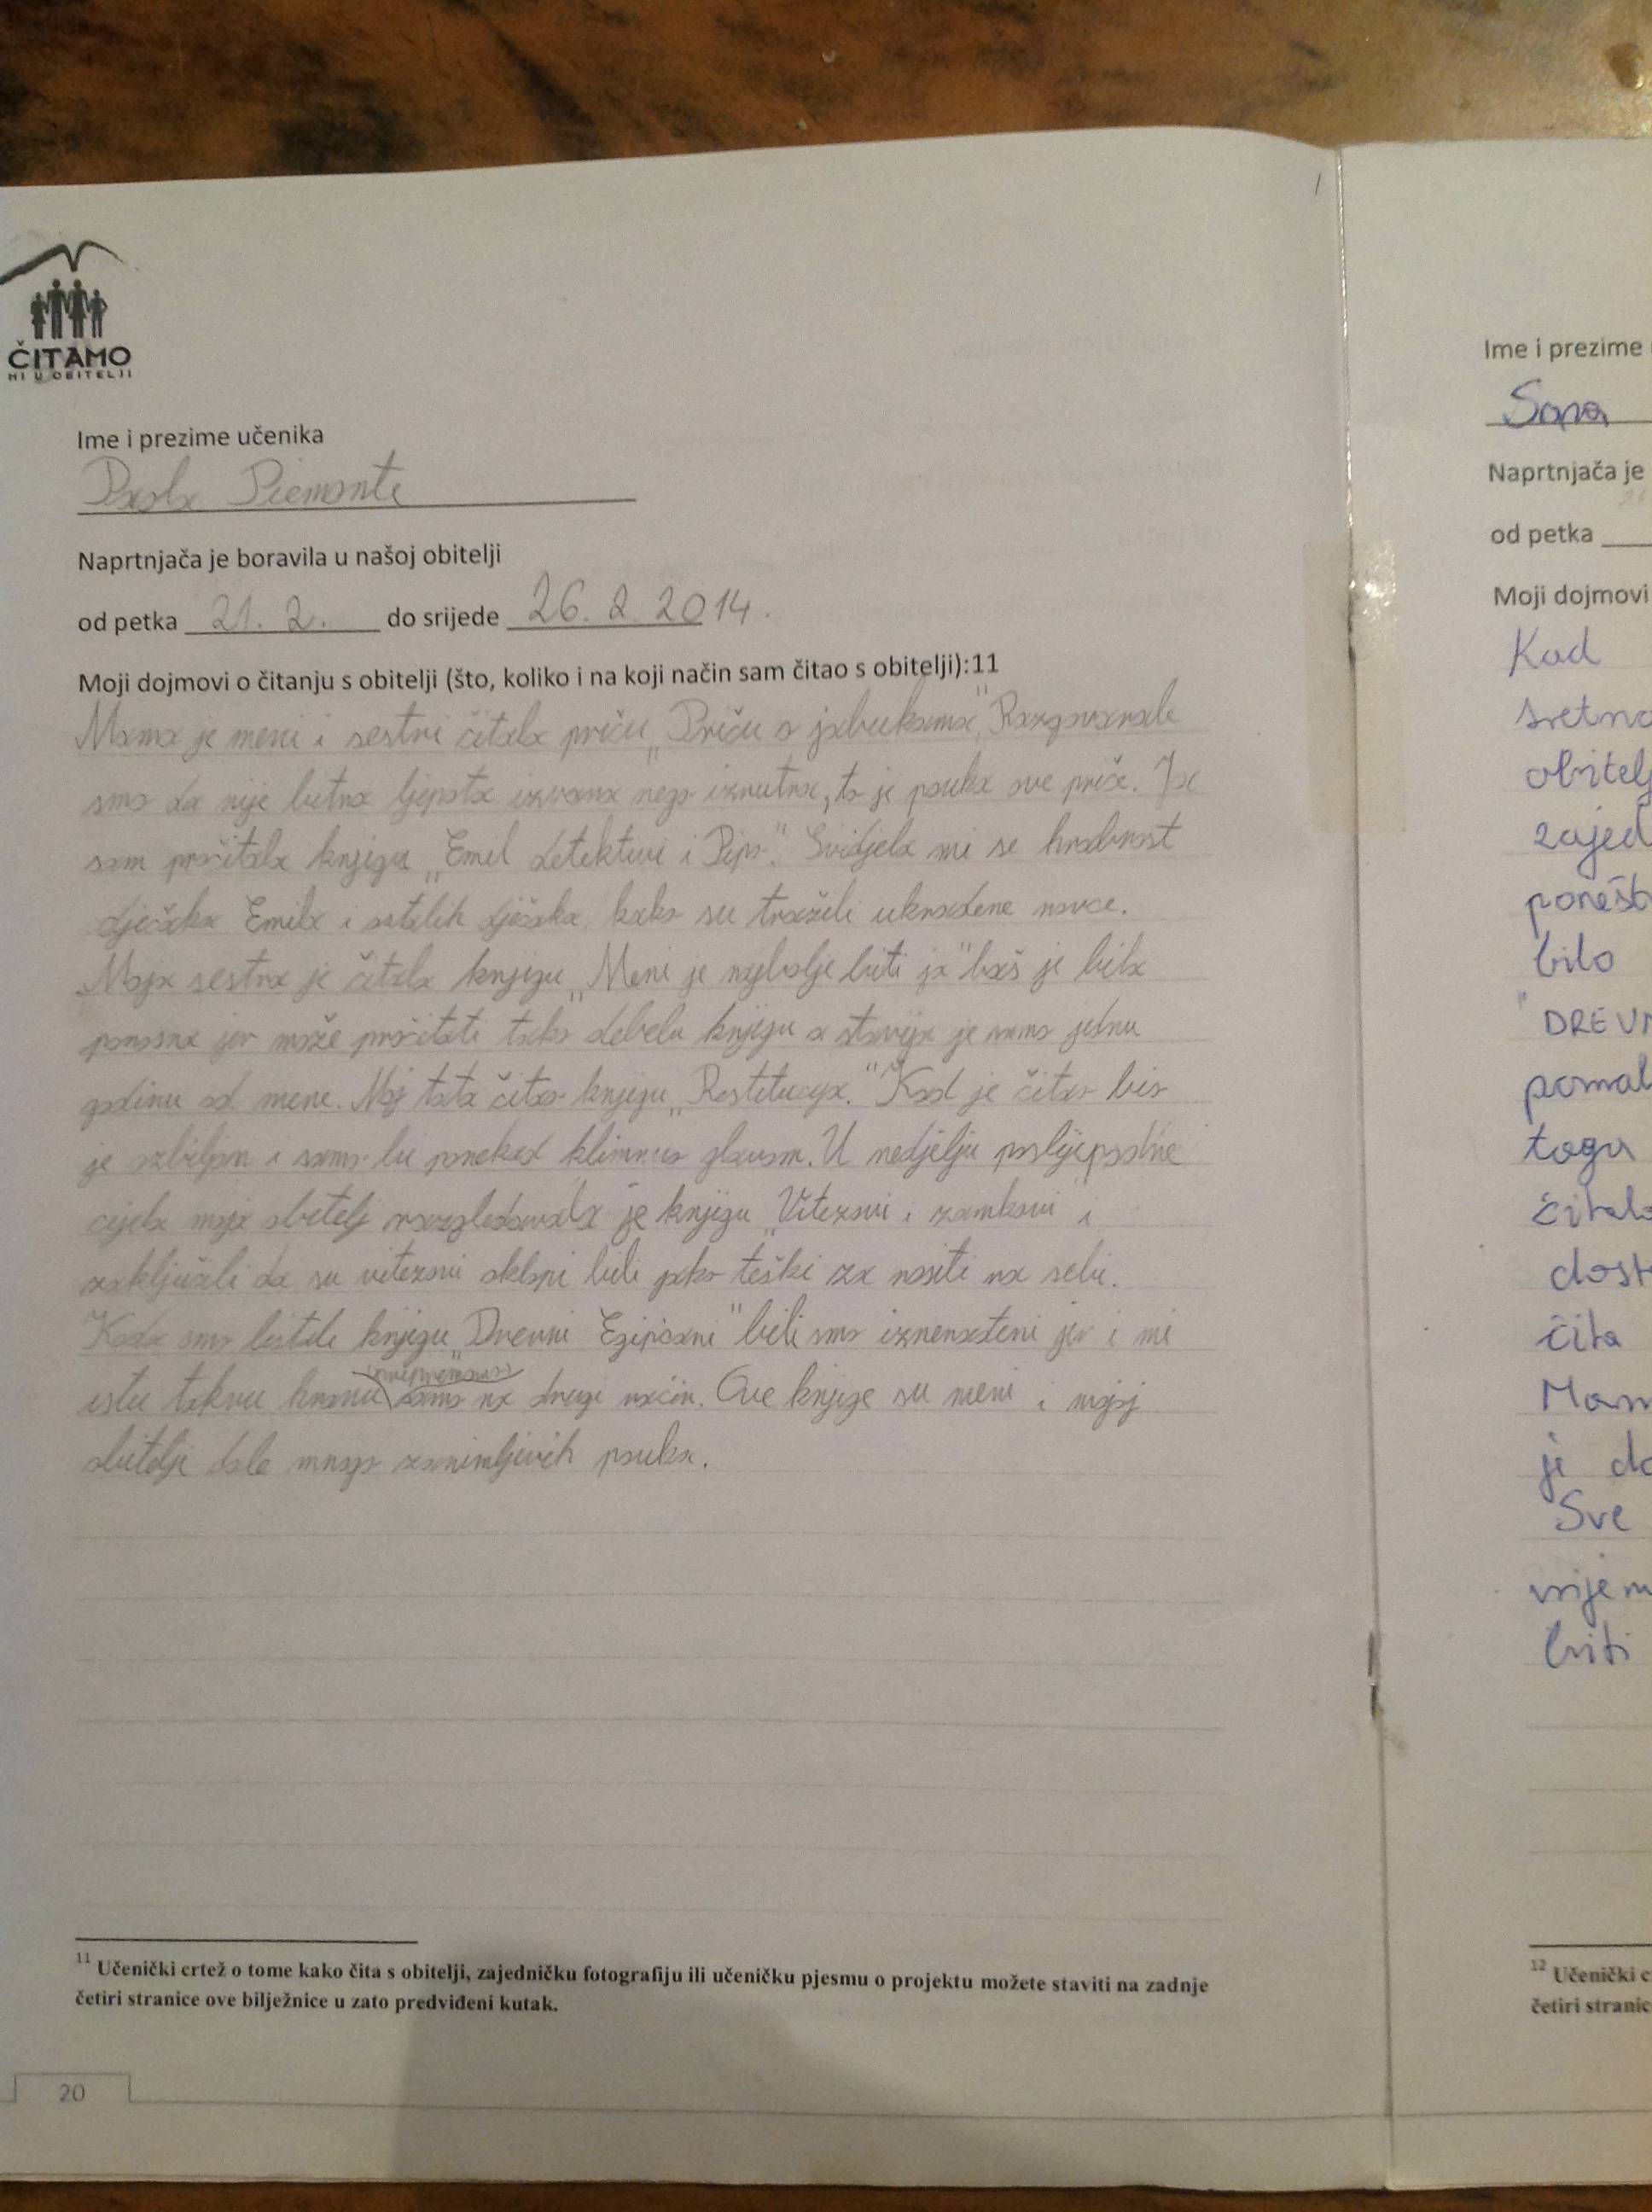 ČITAMO
MI U OBITELJI
Ime i prezime učenika
Paola Piemonte
Naprtnjača je boravila u našoj obitelji
od petka 21. 2. do srijede 26. 2. 2014.
Moji dojmovi o čitanju s obitelji (što, koliko i na koji način sam čitao s obitelji):11
Mama je meni i sestri čitala priču „Priču o jabukama". Razgovarale
smo da nije bitna ljepota izvana nego iznutra, to je pouka ove priče. Ja
sam pročitala knjigu „Emil detektivi i Pipo". Svidjela mi se hrabrost
dječaka Emila i ostalih dječaka kako su tražili ukradene novce.
Moja sestra je čitala knjigu „Meni je najbolje biti ja" baš je bila
ponosna jer može pročitati tako debelu knjigu a starija je samo jednu
godinu od mene. Moj tata čitao knjigu „Restitucija." Kad je čitao bio
je ozbiljan i samo bi ponekad klimnuo glavom. U nedjelju poslijepodne
cijela moja obitelj razgledavala je knjigu „Vitezovi i zamkovi" i
zaključili da su vitezovi oklopi bili jako teški za nositi na sebi.
Kada smo listali knjigu „Drevni Egipćani" bili smo iznenađeni jer i mi
istu takvu hranu pripremamo samo na drugi način. Ove knjige su meni i mojoj
obitelji dale mnogo zanimljivih pouka.
11 Učenički crtež o tome kako čita s obitelji, zajedničku fotografiju ili učeničku pjesmu o projektu možete staviti na zadnje
četiri stranice ove bilježnice u zato predviđeni kutak.
20
Ime i prezime
Sara
Naprtnjača je
od petka
Moji dojmovi
Kad
sretno
obitelj
zajed
ponešto
bilo
"DREVN
pomal
toga
čitalo
dost
čita
Mam
je do
Sve
vrijem
biti
12 Učenički c
četiri stranic